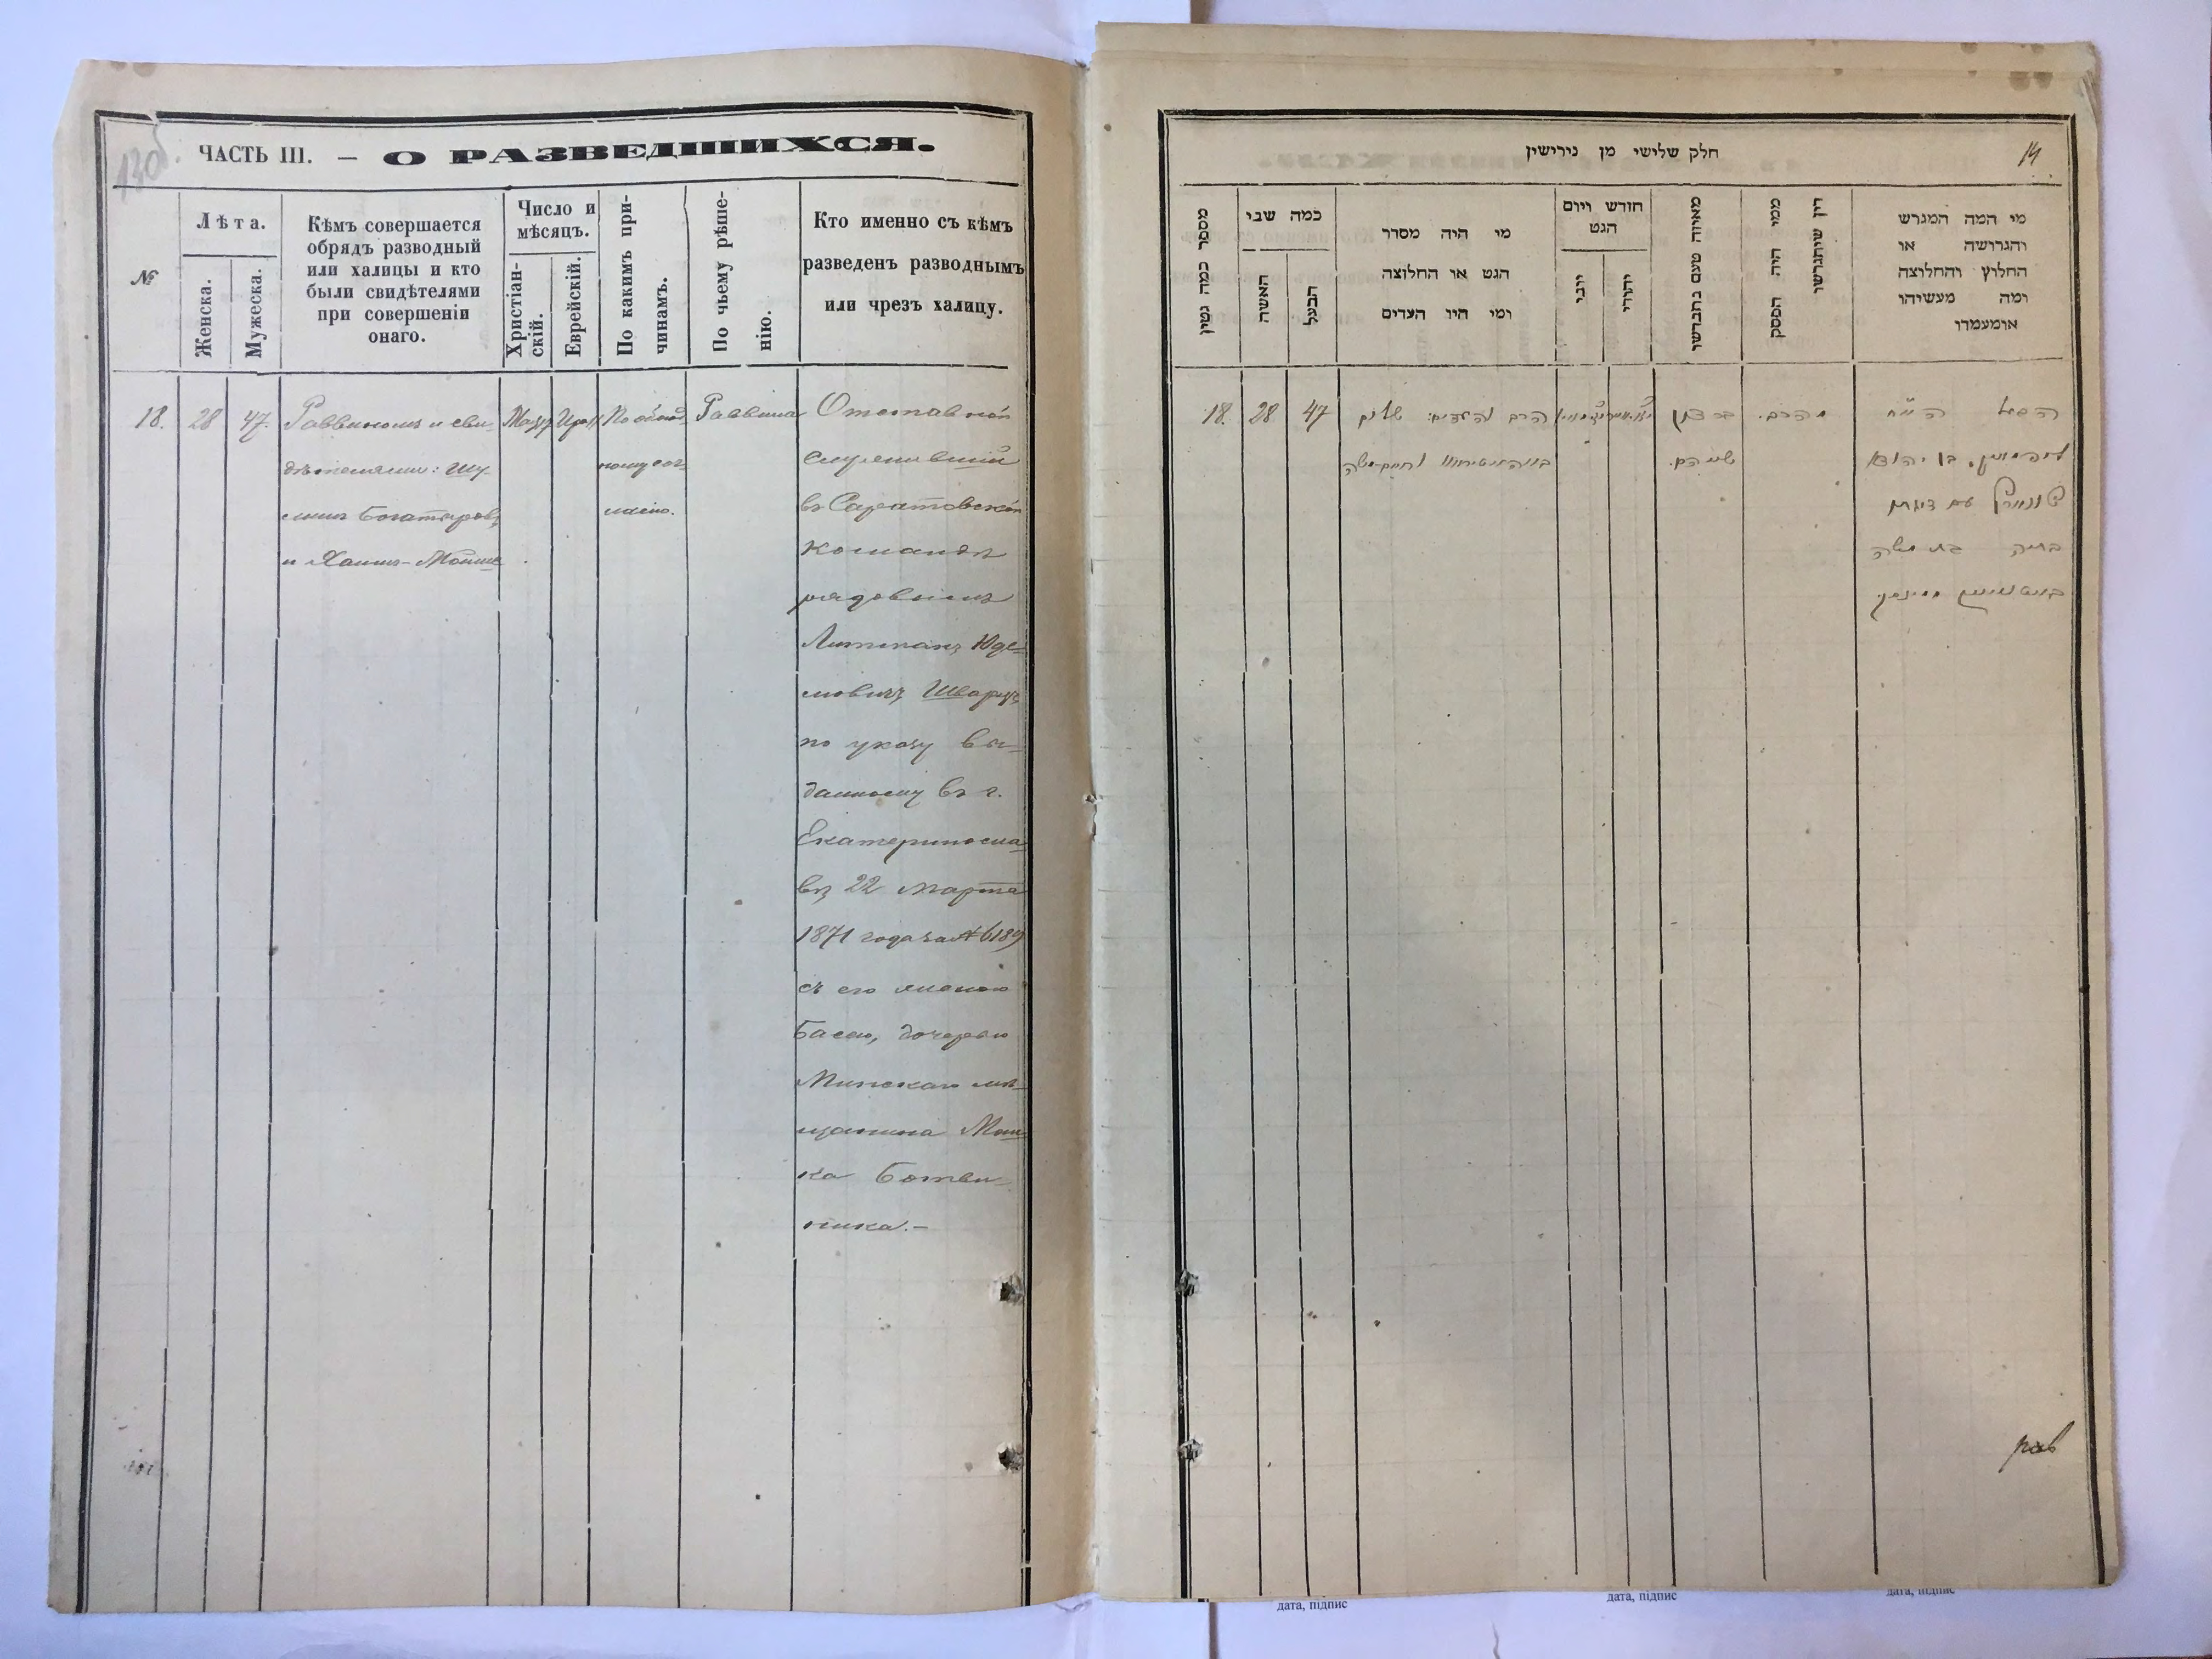 130б.
ЧАСТЬ III. — О РАЗВЕДШИХСЯ.
№
Лѣта.
Женска.
Мужеска.
Кѣмъ совершается
обрядъ разводный
или халицы и кто
были свидѣтелями
при совершеніи
онаго.
Число и
мѣсяцъ.
Христіан-
скій.
Еврейскій.
По какимъ при-
чинамъ.
По чьему рѣше-
нію.
Кто именно съ кѣмъ
разведенъ разводнымъ
или чрезъ халицу.
18.
28
47.
Раввиномъ и сви-
дѣтелями: Шу-
Богатыровъ
и Хаимъ-Мойше
По обоюд-
ному сог-
ласію.
Раввина
Отставной
служившій
въ Саратовской
командѣ
рядовымъ
Литманъ Юде-
левичъ Шварцъ,
по указу вы-
данному въ г.
Екатериносла-
вѣ 22 Марта
1871 года за № 6189
съ его женою
Басею, дочерью
Минскаго мѣ-
щанина Мов-
ка Ботви-
ника.—
חלק שלישי מן גירישין
14
מספר כמה גטין
כמה שני
האשה
הבעל
מי היה מסדר
הגט או החלוצה
ומי היו העדים
חודש ויום
הגט
יוני
יהודי
מאיזה טעם נתגרשו
ממי היה הפסק
דין שיתגרשו
מי המה המגרש
והגרושה או
החלוץ והחלוצה
ומה מעשיהו
אומעמדו
18.
28
47
הרב והעדים:
שניהם.
מהרב.
בן יהודא
עם זוגתו
בת משה
רаб
дата, підпис
дата, підпис
дата, підпис